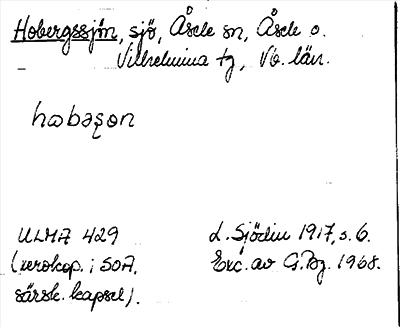 Hobergssjön, sjö, Åsele sn, Åsele o.
Vilhelmina tg, Vb. län.
habaşon
ULMA 429
(xerokop. i SOA,
särsk. kapsel).
L. Sjödin 1917, s. 6.
Exc. av G.Bg. 1968.